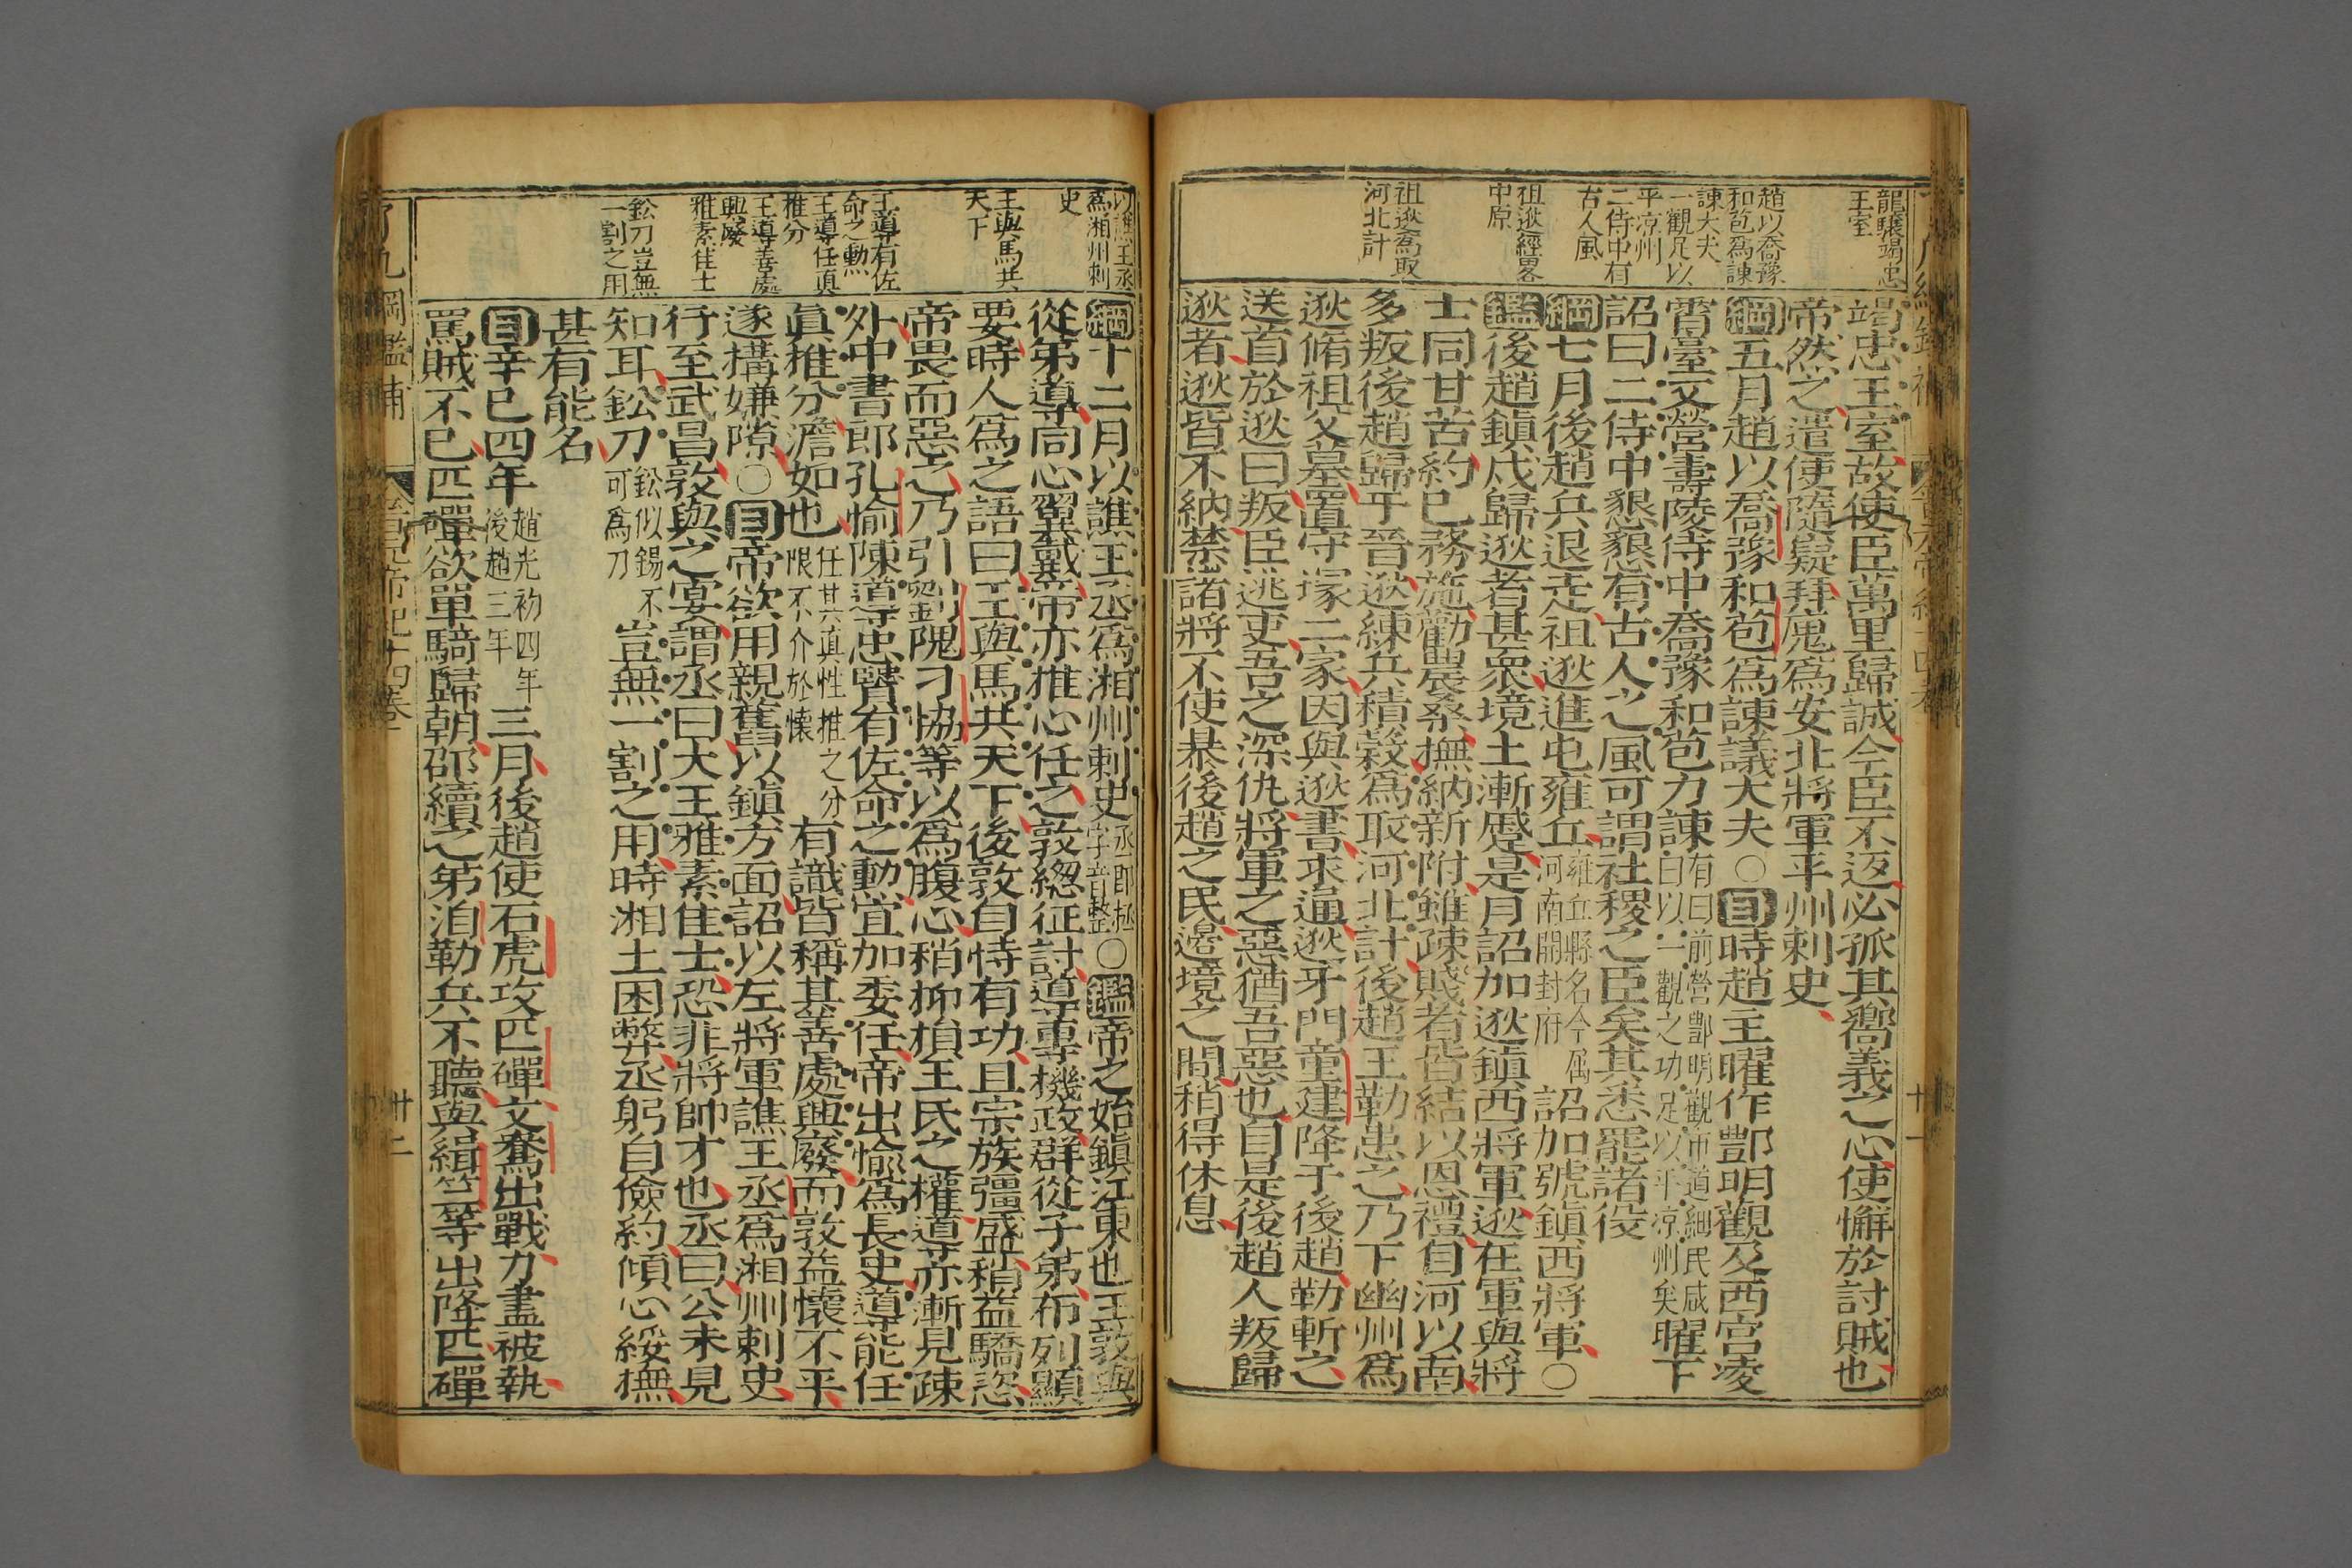 龍驤竭忠
王室
趙以喬豫
和苞為諫
諫大夫
一觀足以
平涼州
二侍中有
古人風
祖逖經畧
中原
祖逖爲取
河北計
竭忠王室故使臣萬里歸誠今臣不返必孤其嚮義之心使懈於討賊也
帝然之遣使隨嶷拜廆爲安北將軍平州刺史
綱五月趙以喬豫和苞爲諫議大夫○目時趙主曜作酆明觀及西宮凌
霄臺又營壽陵侍中喬豫和苞力諫有曰前營酆明觀市道細民咸曰以一觀之功足以平涼州矣曜下
詔曰二侍中懇懇有古人之風可謂社稷之臣矣其悉罷諸役
綱七月後趙兵退走祖逖進屯雍丘雍丘縣名今屬河南開封府詔加號鎮西將軍○
鑑後趙鎮戍歸逖者甚衆境土漸蹙是月詔加逖鎮西將軍逖在軍與將
士同甘苦約已務施勸農桑撫納新附雖踈賤者皆結以恩禮自河以南
多叛後趙歸于晉逖練兵積穀爲取河北計後趙王勒患之乃下幽州爲
逖脩祖父墓置守塚二家因與逖書求通逖牙門童建降于後趙勒斬之
送首於逖曰叛臣逃吏吾之深仇將軍之惡猶吾惡也自是後趙人叛歸
逖者逖皆不納禁諸將不使暴後趙之民邊境之間稍得休息
以譙王丞
爲湘州刺
史
王與馬共
天下
王導有佐
命之勲
王導任眞
推分
王導善處
興廢
雅素佳士
鈆刀豈無
一割之用
綱十二月以譙王丞爲湘州刺史丞即拯字音整○鑑帝之始鎮江東也王敦與
從弟導同心翼戴帝亦推心任之敦緫征討導專機政群從子弟布列顯
要時人爲之語曰王與馬共天下後敦自恃有功且宗族彊盛稍益驕恣
帝畏而惡之乃引劉隗刁協等以爲腹心稍抑損王氏之權導亦漸見踈
外中書郎孔愉陳導忠賢有佐命之勳宜加委任帝出愉爲長史導能任
眞推分澹如也任其眞性推之分限不介於懷有識皆稱其善處興廢而敦益懷不平
遂搆嫌隙○目帝欲用親舊以鎮方面詔以左將軍譙王丞爲湘州刺史
行至武昌敦與之宴謂丞曰大王雅素佳士恐非將帥才也丞曰公未見
知耳鈆刀鈆似錫不可爲刀豈無一割之用時湘土困弊丞躬自儉約傾心綏撫
甚有能名
目辛巳四年趙光初四年後趙三年三月後趙使石虎攻匹磾文鴦出戰力盡被執
罵賊不已匹磾欲單騎歸朝邵續之弟洎勒兵不聽與緝竺等出降匹磾
了凡綱鑑補
晉元帝紀十四卷
廿二